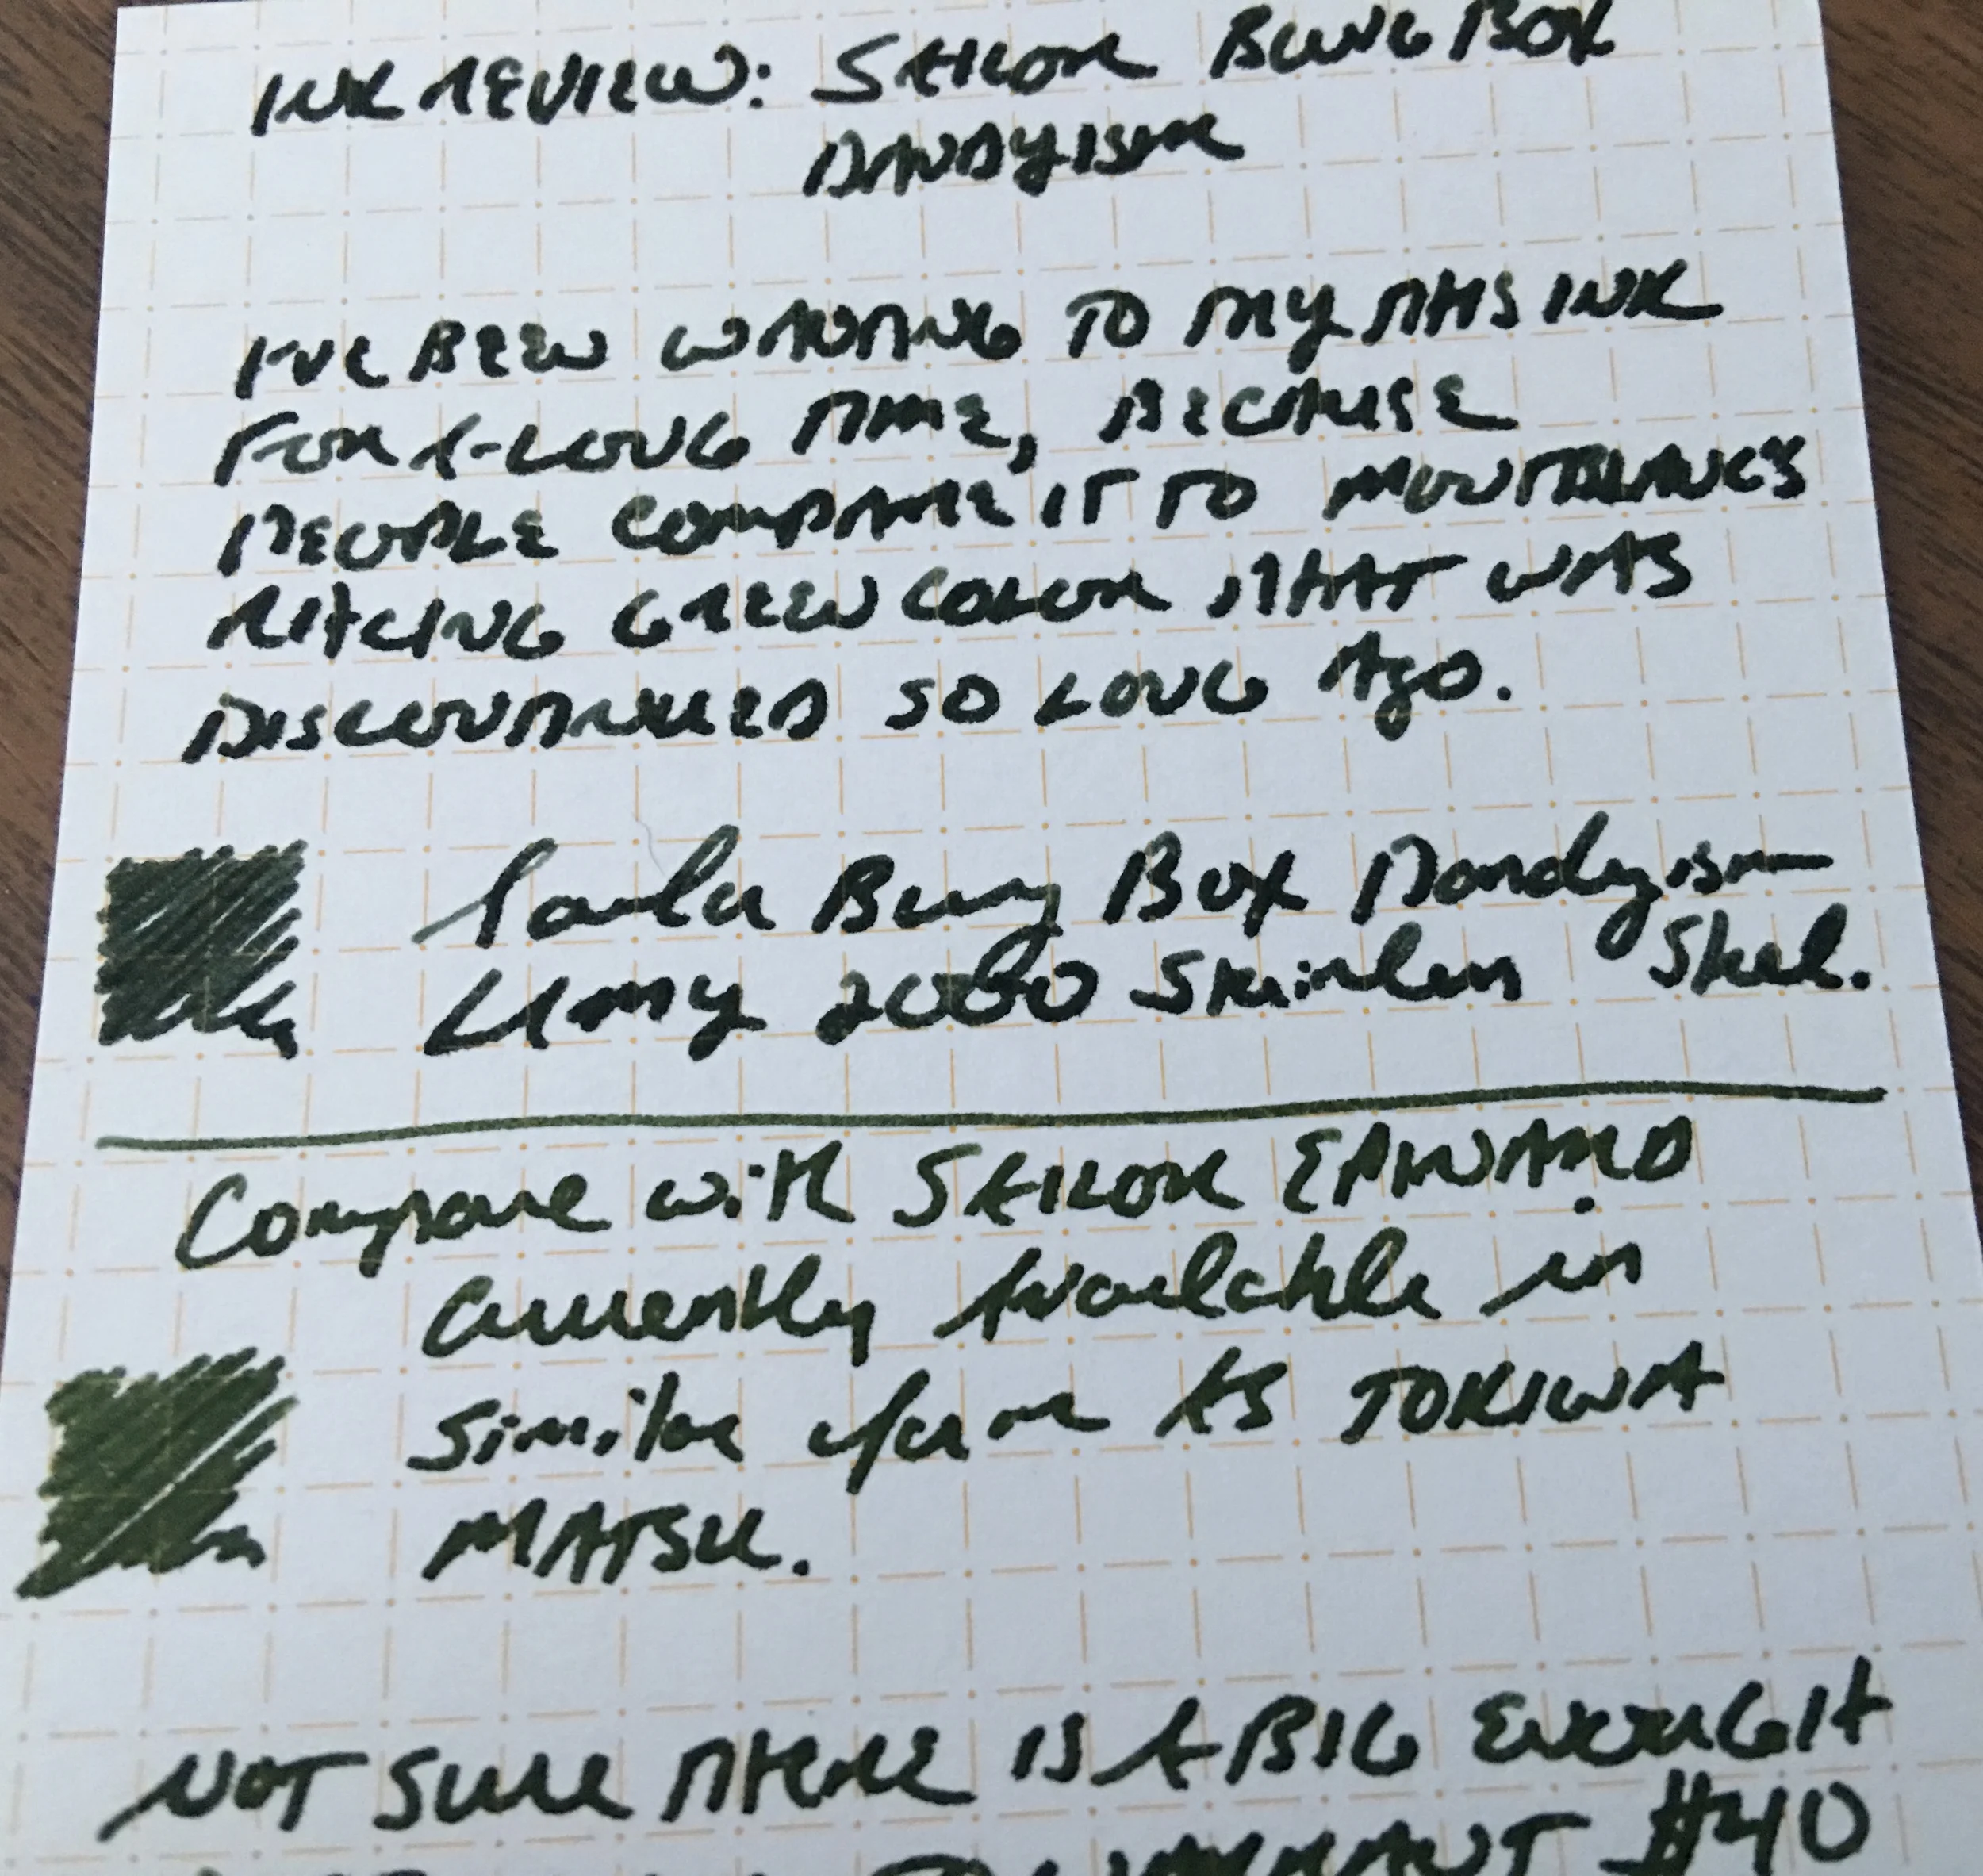 INK REVIEW: SAILOR BUNG BOX
DANDYISM
I'VE BEEN WANTING TO TRY THIS INK
FOR A LONG TIME, BECAUSE
PEOPLE COMPARE IT TO MONTBLANC'S
RACING GREEN COLOR THAT WAS
DISCONTINUED SO LONG AGO.
Sailor Bung Box Dandyism
LAMY 2000 Stainless Steel.
Compare with SAILOR EPINARD
Currently Available in
Similar form AS TOKIWA
MATSU.
NOT SURE THERE IS A BIG ENOUGH
TO WARRANT #40